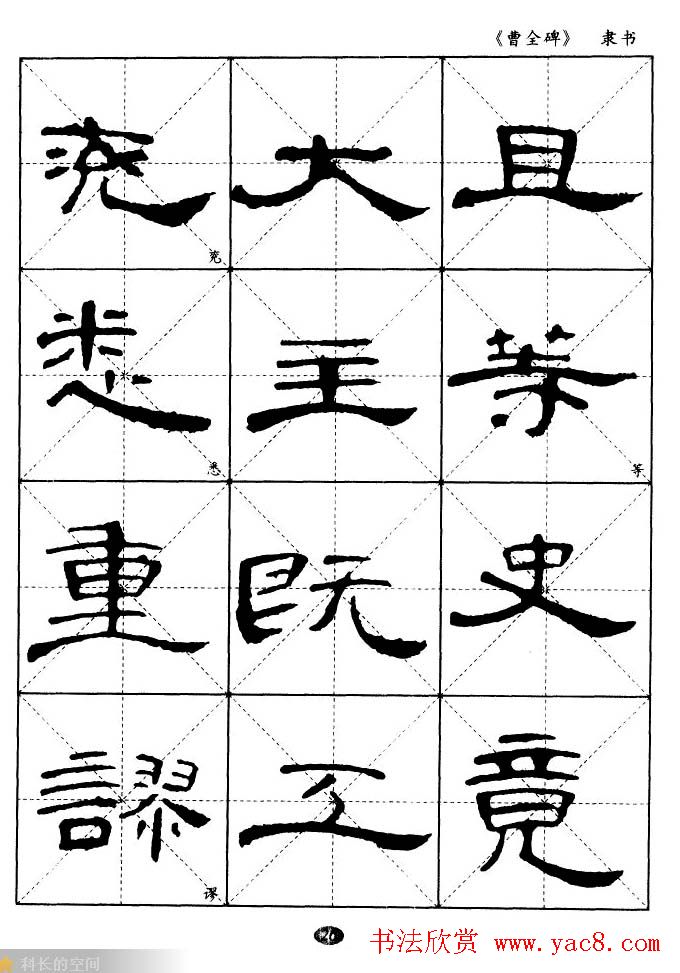 《曹全碑》 隶书
且等史竟
等
大主既工
兖悉重謬
兖
悉
谬
书法欣赏 www.yac8.com
科长的空间